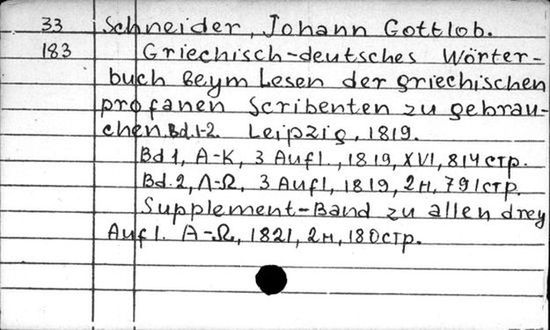 33 Schneider, Johann Gottlob.
183 Griechisch-deutsches Wörter-
buch beym Lesen der griechischen
profanen Scribenten zu gebrau-
chen. Bd. 1-2. Leipzig, 1819.
Bd 1, A-K, 3 Aufl., 1819, XVI, 814 стр.
Bd. 2, Λ-Ω, 3 Aufl, 1819, 2н, 791 стр.
Supplement-Band zu allen drey
Aufl. A-Ω, 1821, 2н, 180 стр.